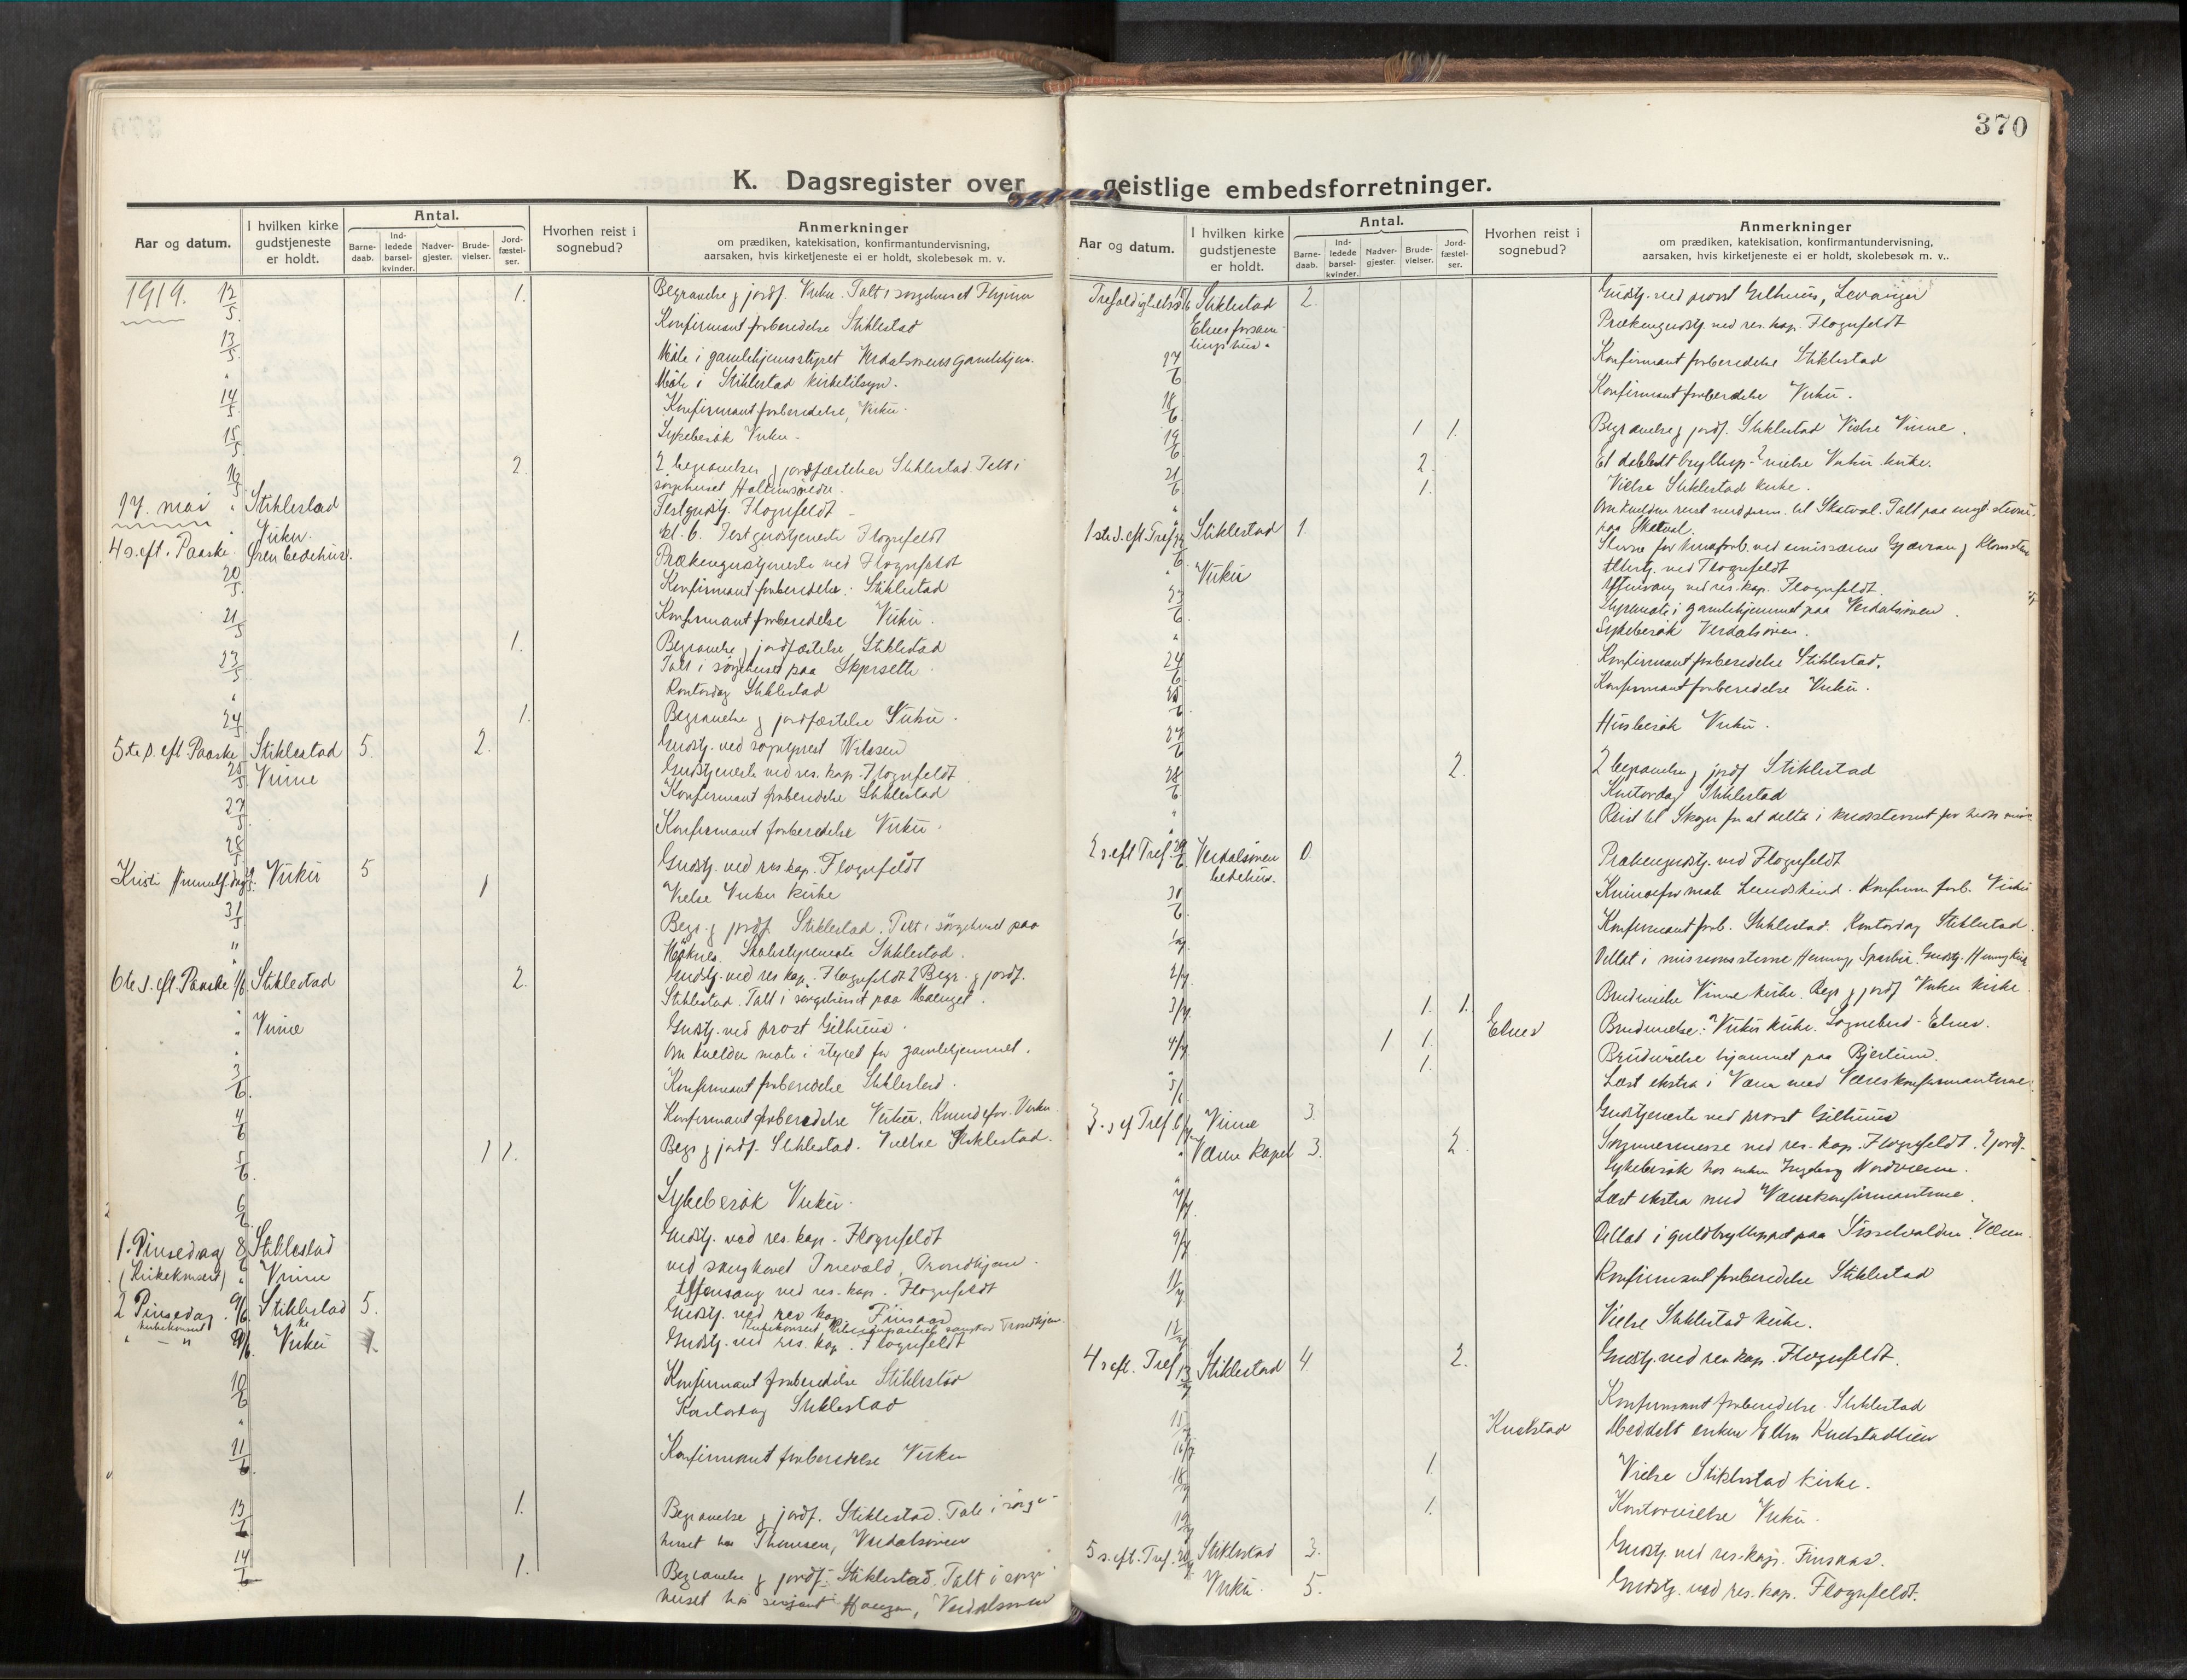 370
K. Dagsregister over geistlige embedsforretninger.
Aar og datum.
I hvilken kirke gudstjeneste er holdt.
Antal.
Barne-daab.
Ind-ledede barsel-kvinder.
Nadver-gjester.
Brude-vielser.
Jord-fæstel-ser.
Hvorhen reist i sognebud?
Anmerkninger
om prædiken, katekisation, konfirmantundervisning,
aarsaken, hvis kirketjeneste ei er holdt, skolebesøk m. v.
1919. 12/5 1. Begravelse & jordf. Vuku. Talt i sørgehuset
Konfirmantforberedelse Stiklestad
13/5 Møte i gamlehjemsstyret Verdalsørens gamlehjem.
" Møte i Stiklestad kirketilsyn.
14/5 Konfirmantforberedelse, Vuku.
15/5 Sykebesøk Vuku.
16/5 2. 2 begravelser & jordfæstelser Stiklestad. Talt i
sørgehuset
17. mai " Stiklestad Festgudstj. Flognfeldt
" Vuku. kl. 6. Festgudstjeneste Flognfeldt
4 s. eft. Paaske. Ören bedehus. Prækengudstjeneste ved Flognfeldt
20/5 Konfirmantforberedelse. Stiklestad
21/5 Konfirmantforberedelse Vuku.
23/5 1. Begravelse & jordfæstelse Stiklestad
Talt i sørgehuset paa
" Kontordag Stiklestad
24/5 1. Begravelse & jordfæstelse Vuku.
5te s. eft Paaske Stiklestad 5. 2. Gudstj. ved sogneprest Nilssen
25/5 Vinne Gudstjeneste ved res. kap. Flognfeldt
27/5 Konfirmantforberedelse Stiklestad
28/5 Konfirmantforberedelse Vuku.
Kristi Himmelf. dag 29/5. Vuku 5 Gudstj. ved res. kap. Flognfeldt
31/5 1 Vielse Vuku kirke
" Begr. & jordf. Stiklestad. Talt i sørgehuset paa
Skolestyremøte Stiklestad.
6te s. eft. Paaske 1/6 Stiklestad 2. Gudstj. ved res. kap. Flognfeldt 2 Begr. & jordf.
Stiklestad. Talt i sørgehuset paa
" Vinne Gudstj. ved prost Gilhuus.
" Om kvelden møte i styret for gamlehjemmet.
3/6 Konfirmantforberedelse Stiklestad.
4/6 Konfirmantforberedelse Vuku. Vuku.
5/6 1 1. Begr & jordf. Stiklestad. Vielse Stiklestad.
6/6 Sykebesøk Vuku.
1. Pinsedag 8/6 Stiklestad Gudstj. ved res. kap. Flognfeldt
(Kirkekonsert) " Vinne ved sangkoret Trondhjem.
Aftensang ved res. kap. Flognfeldt
2 Pinsedag 9/6 Stiklestad 5. Gudstj. ved res. kap. Finsaas
Kirkekonsert Trondhjem.
" — " 9/6 Vuku Gudstj. ved res. kap. Flognfeldt
10/6 Konfirmantforberedelse Stiklestad
" Kontordag Stiklestad
11/6 Konfirmantforberedelse Vuku
13/6 1. Begravelse & jordf. Stiklestad. Tale i sørge-
huset hos Thomsen, Verdalsøren
14/6 1. Begravelse & jordf. Stiklestad. Talt i sørge-
huset hos Haugan, Verdalsøren
Aar og datum.
I hvilken kirke gudstjeneste er holdt.
Antal.
Barne-daab.
Ind-ledede barsel-kvinder.
Nadver-gjester.
Brude-vielser.
Jord-fæstel-ser.
Hvorhen reist i sognebud?
Anmerkninger
om prædiken, katekisation, konfirmantundervisning,
aarsaken, hvis kirketjeneste ei er holdt, skolebesøk m. v..
Trefoldighets 15/6 Stiklestad 2. Gudstj. ved prost Gilhuus, Levanger
Elnes forsam-
lingshus. Prækengudstj. ved res. kap. Flognfeldt
17/6 Konfirmantforberedelse Stiklestad
18/6 Konfirmantforberedelse Vuku.
19/6 1 1. Begravelse & jordf. Stiklestad Vielse Vinne.
21/6 2. Et dobbelt bryllup - 2 vielse Vuku kirke.
" 1. Vielse Stiklestad kirke.
Om kvelden reist til Skatval. Talt paa
paa Skatval.
1ste s. eft Tref. 22/6 Stiklestad 1. Stevne for
Altertj. ved Flognfeldt
" Vuku Aftensang ved res. kap. Flognfeldt.
23/6 Styremøte i gamlehjemmet paa Verdalsøren.
" Sykebesøk Verdalsøren.
24/6 Konfirmantforberedelse Stiklestad.
25/6 Konfirmantforberedelse Vuku.
27/6 Husbesøk Vuku.
28/6 2. 2 begravelse & jordf Stiklestad
Kontordag Stiklestad
" Reist til Skogn for at delta i
2 s. eft Tref. 29/6 Verdalsøren
bedehus. 0. Prækengudstj. ved Flognfeldt
30/6 Konfirm. forb. Vuku
1/7 Konfirmantforb. Stiklestad. Kontordag Stiklestad.
2/7 Deltat i missionsstevne Henning, Sparbu. Gudstj. Henning kirke
3/7 1. 1. Brudevielse Vinne kirke. Begr & jordf Vuku kirke
4/7 1 1. Elnes Brudevielse: Vuku kirke. Sognebud - Elnes.
1. Brudevielse hjemmet paa Bjertum.
5/7 Læst ekstra i Vera med Vereskonfirmanterne.
3. s. ef Tref. 6/7 Vinne 3. Gudstjeneste ved prost Gilhuus
" Være Kapel 3. 2. Sognemesse ved res. kap. Flognfeldt. 2 jordf.
" Sykebesøk hos enken Ingeborg
7/7 Læst ekstra med
9/7 Deltat i guldbryllupet paa
11/7 Konfirmantforberedelse Stiklestad
12/7 Vielse Stiklestad kirke.
4 s. eft. Tref 13/7 Stiklestad 4 2. Gudstj. ved res. kap. Flognfeldt.
15/7 Konfirmantforberedelse Stiklestad
16/7 Meddelt enken
18/7 1. Vielse Stiklestad kirke.
19/7 1. Kontorvielse Vuku.
5 s. eft. Tref. 20/7 Stiklestad 3. Gudstj. ved res. kap. Finsaas.
" Vuku. 5. Gudstj. ved res. kap. Flognfeldt.